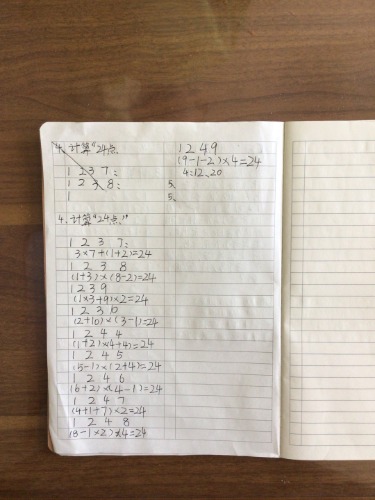 4、计算"24点
1 2 3 7:
1 2 3 8:
1
4、计算"24点!"
1 2 3 7:
3×7+(1+2)=24
1 2 3 8
(1+3)×(8-2)=24
1 2 3 9
(1×3+9)×2=24
1 2 3 10
(2+10)×(3-1)=24
1 2 4 4
(1+2)×(4+4)=24
1 2 4 5
(5-1)×(2+4)=24
1 2 4 6
(6+2)×(4-1)=24
1 2 4 7
(4+1+7)×2=24
1 2 4 8
(8-1×2)×4=24
1 2 4 9
(9-1-2)×4=24
4:12、20
5、
5、